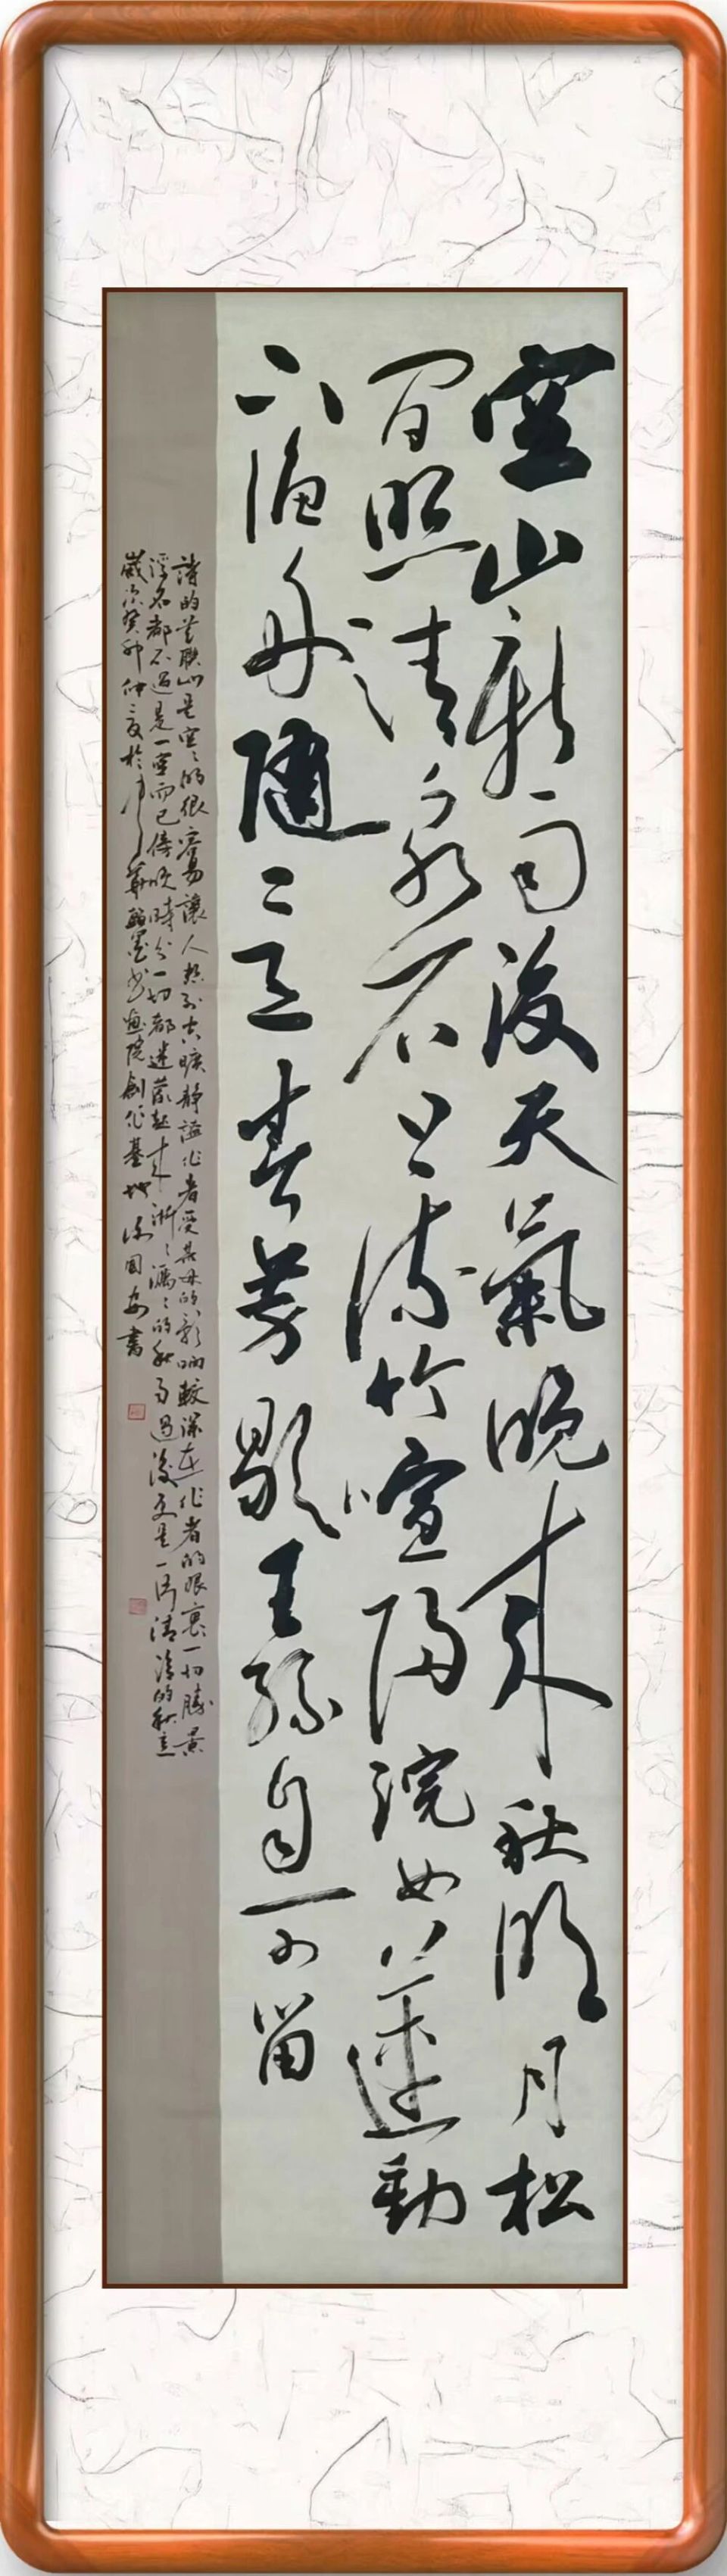 空山新雨後天氣晚來秋明月松
間照清泉石上流竹喧歸浣女蓮動
下漁舟隨意春芳歇王孫自可留
詩的首聯山是空々的很容易讓人想到空曠靜謐作者受其母的影响較深在作者的眼裏一切勝景
浮名都不過是一空而已傍晚時分一切都迷茫起來淅々瀝々的秋雨過後更是一陣清涼的秋意
歲次癸卯仲夏於中華翰墨書畫院創作基地國安書